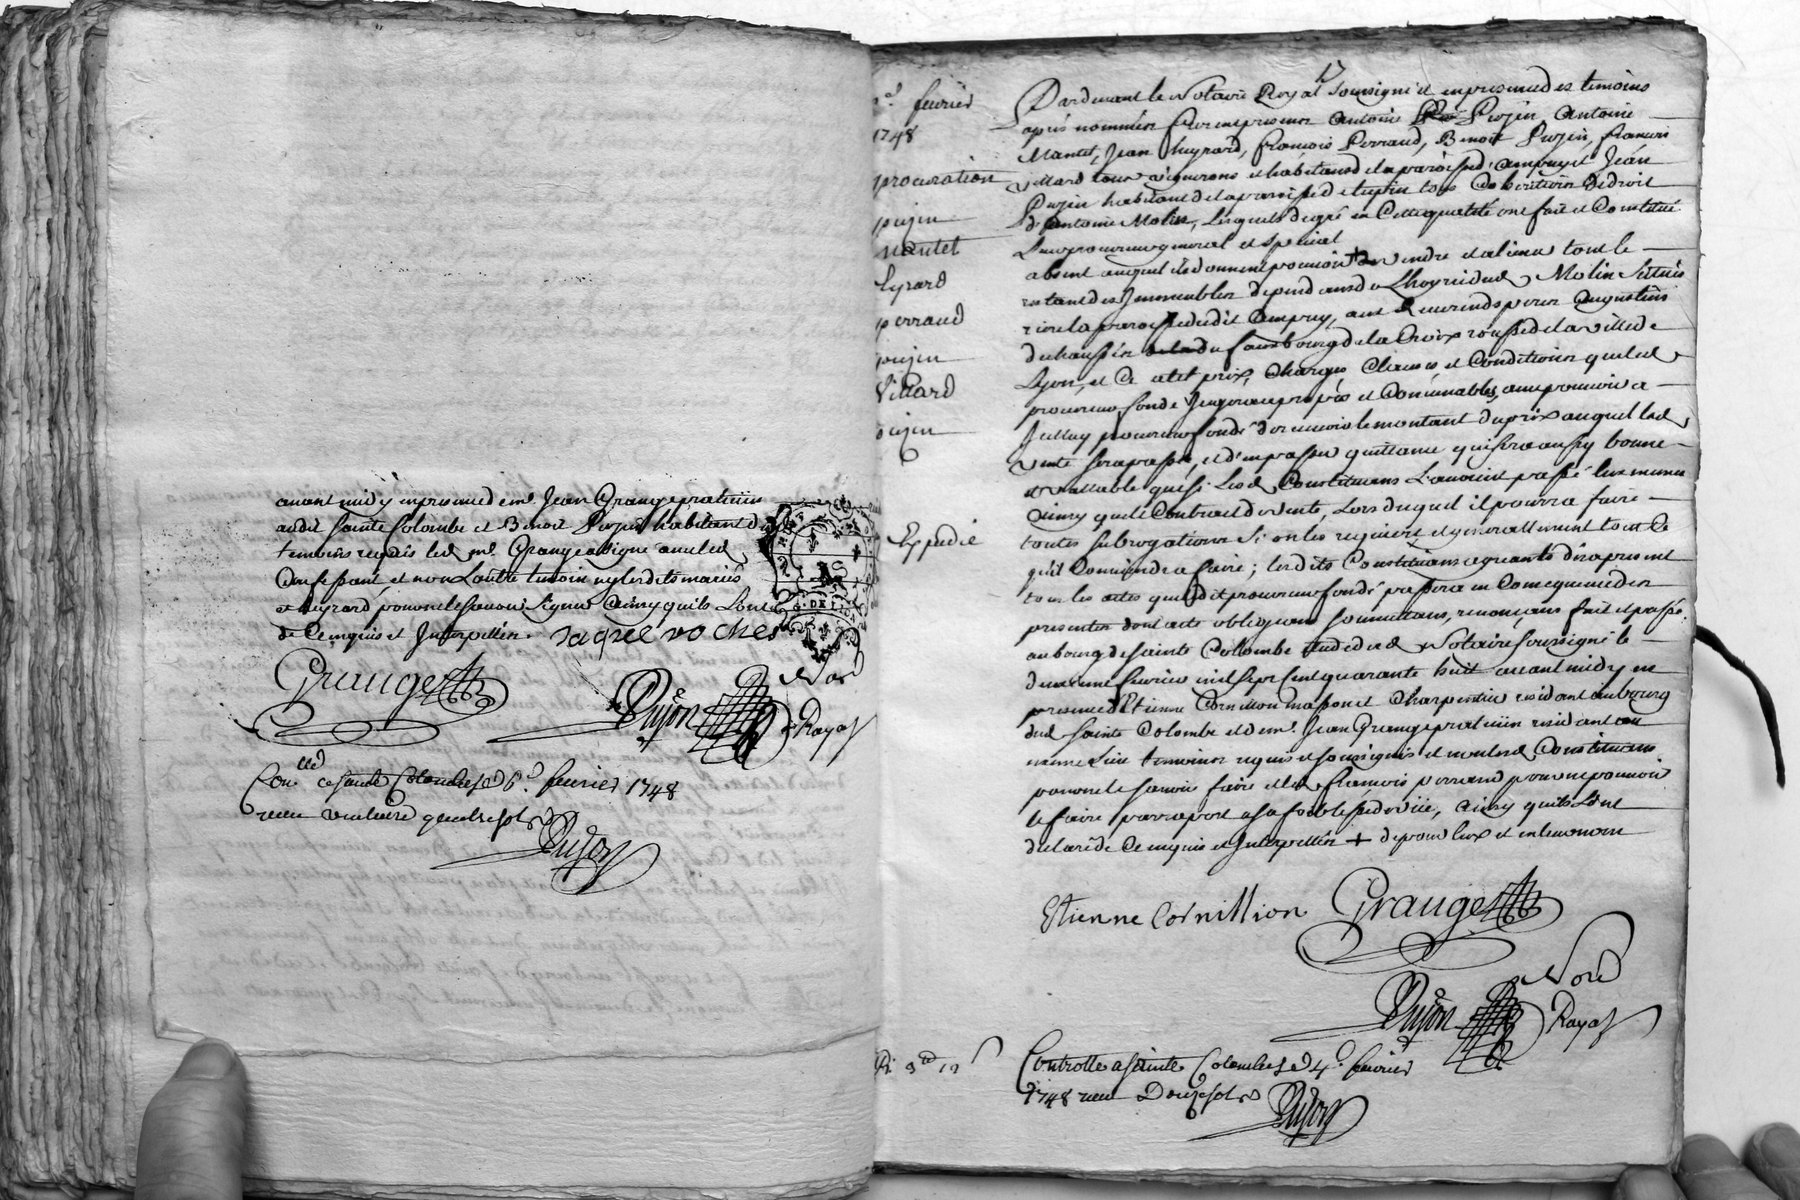 avant midy en presence de mr. Jean Grange praticien
audit Sainte Colombe et Benoit Pugin habitant d
temoins requis led. mr. Grange a signé avec led.
Confessant, et non l'autre temoin ny lesdits mariés
et Heyrard, pour ne le savoir signer ainsy quils l'ont
de ce enquis et Interpellés. Jaque roches
Grange
Dujon Nore
Royal
Conllé a sainte Colombe le 6e. fevrier 1748
receu quatre sols
Dujon
2e. fevrier
1748
procuration
pujin
Mantel
Heyrard
perraud
pujin
Villard
pujin
Expedié
Pardevant le Notaire Royal soussigné et en presence des temoins
apres nommés furent presents Antoine Pujin, Antoine
Mantel, Jean Heyrard, François Perraud, Benoit Pujin, François
Villard tous vignerons et habitans de la paroisse d'ampuy et Jean
Pujin habitant de la paroisse de tupin tous Coheritiers de droit
de Antoine Molin, Lesquels de gré en Cette qualité ont fait et Constitué
Leur procureur general et special
absent auquel ils donnent pouvoir + de vendre et aliener tout le
restant des Immeubles dependans de L'hoyrie dud. Molin Situés
riere la paroisse dudit Ampuy, aux Reverends peres Augustins
dechaussés du fauxbourg de la Croix rousse de la ville de
Lyon, et Ce a tel prix, charges Clauses et Conditions que led.
procureur fondé Jugera a propos et Convenables, avec pouvoir a
Icelluy procureur fondé de recevoir le montant du prix auquel lad.
vente sera passée, et d'en passer quittance qui sera aussy bonne
et vallable que si Lesd. Constituans L'avoient passé eux memes
ainsy que le Contract de vente, Lors duquel il pourra faire
toutes subrogations Si on les requiert et generallement tout Ce
qu'il Conviendra faire; lesdits Constituans agreants des a present
tous les actes que ledit procureur fondé passera en Consequence des
presentes dont acte obligeans soumettans, renonçans fait et passé
au bourg de Sainte Collombe etude dud. Notaire soussigné le
deuxieme fevrier mil sept Cent quarante huit avant midy en
presence d'Etienne Cornillion masson et Charpentier residant au bourg
dud. Sainte Colombe et de mr. Jean Grange praticien residant au
meme Lieu temoins requis et soussignés et non lesd. Constituans
pour ne le sçavoir faire et led. François perraud pour ne pouvoir
le faire par raport a sa foiblesse de vüe, ainsy quils L'ont
declaré de Ce enquis et Interpellés + de pour Eux et en leur nom
Etienne Cornillion Grange
Dujon Nore
Royal
Controllé a Sainte Colombe le 4e. fevrier
1748 receu Douze sols
Dujon